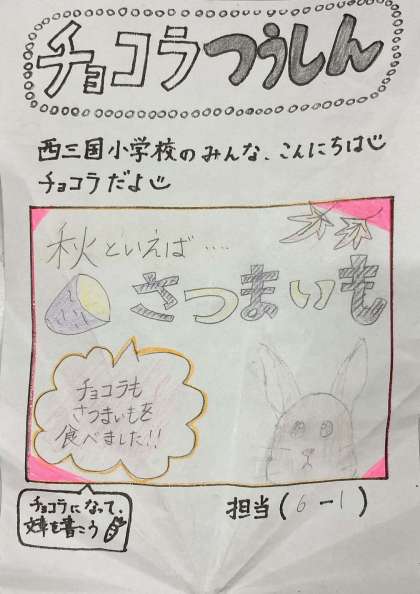 チョコラつうしん
西三国小学校のみんな、こんにちは
チョコラだよ
秋といえば‥‥
さつまいも
チョコラも
さつまいもを
食べました!!
チョコラになって、
文章を書こう
担当(6-1)